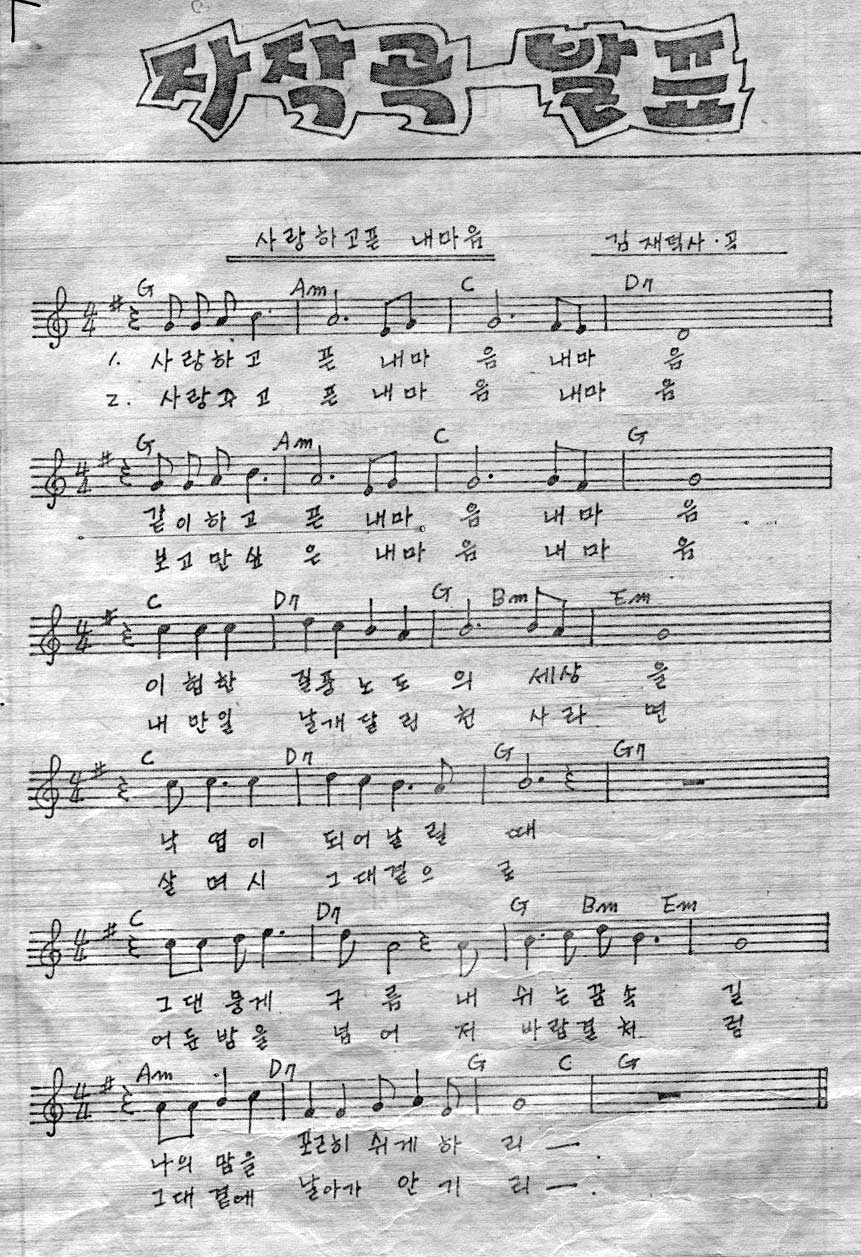 자작곡 발표
사랑하고픈 내마음 김재덕사·곡
G Am C D7
4/4
1. 사랑하고 픈 내마 음 내마 음
2. 사랑주고 픈 내마 음 내마 음
G Am C G
4/4
같이하고 픈 내마 음 내마 음
보고만싶 은 내마 음 내마 음
C D7 G Bm Em
4/4
이 험한 질풍노도 의 세상 을
내 만일 날개달린 천 사라 면
C D7 G G7
4/4
낙 엽이 되어날릴 때
살 며시 그대곁으 로
C D7 G Bm Em
4/4
그댄 뭉게 구 름 내 쉬는꿈속 길
어둔밤을 넘어 저 바람결처 럼
Am D7 G C G
4/4
나의 맘을 포근히 쉬게 하 리 ー
그대 곁에 날아가 안 기 리 ー.